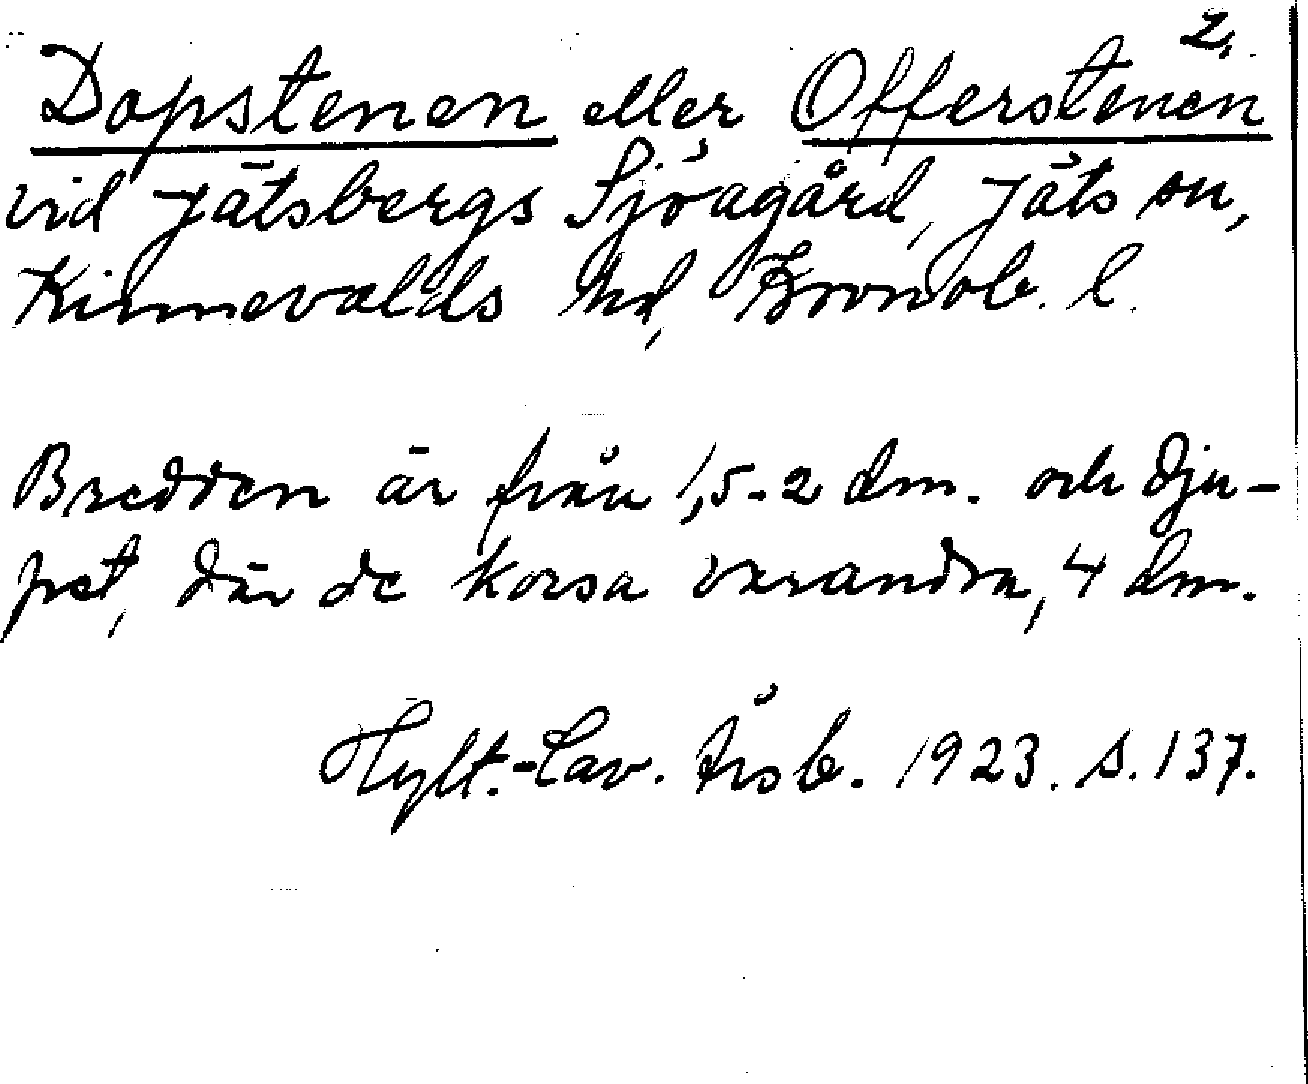 2.
Dopstenen eller Offerstenen
vid Jätsbergs Sjöagård, Jäts sn,
Kinnevalds hd, Kronob. l.
Bredden är från 1,5-2 dm. och dju-
pet, där de korsa varandra, 4 dm.
Hylt.-Cav. Årsb. 1923. s. 137.